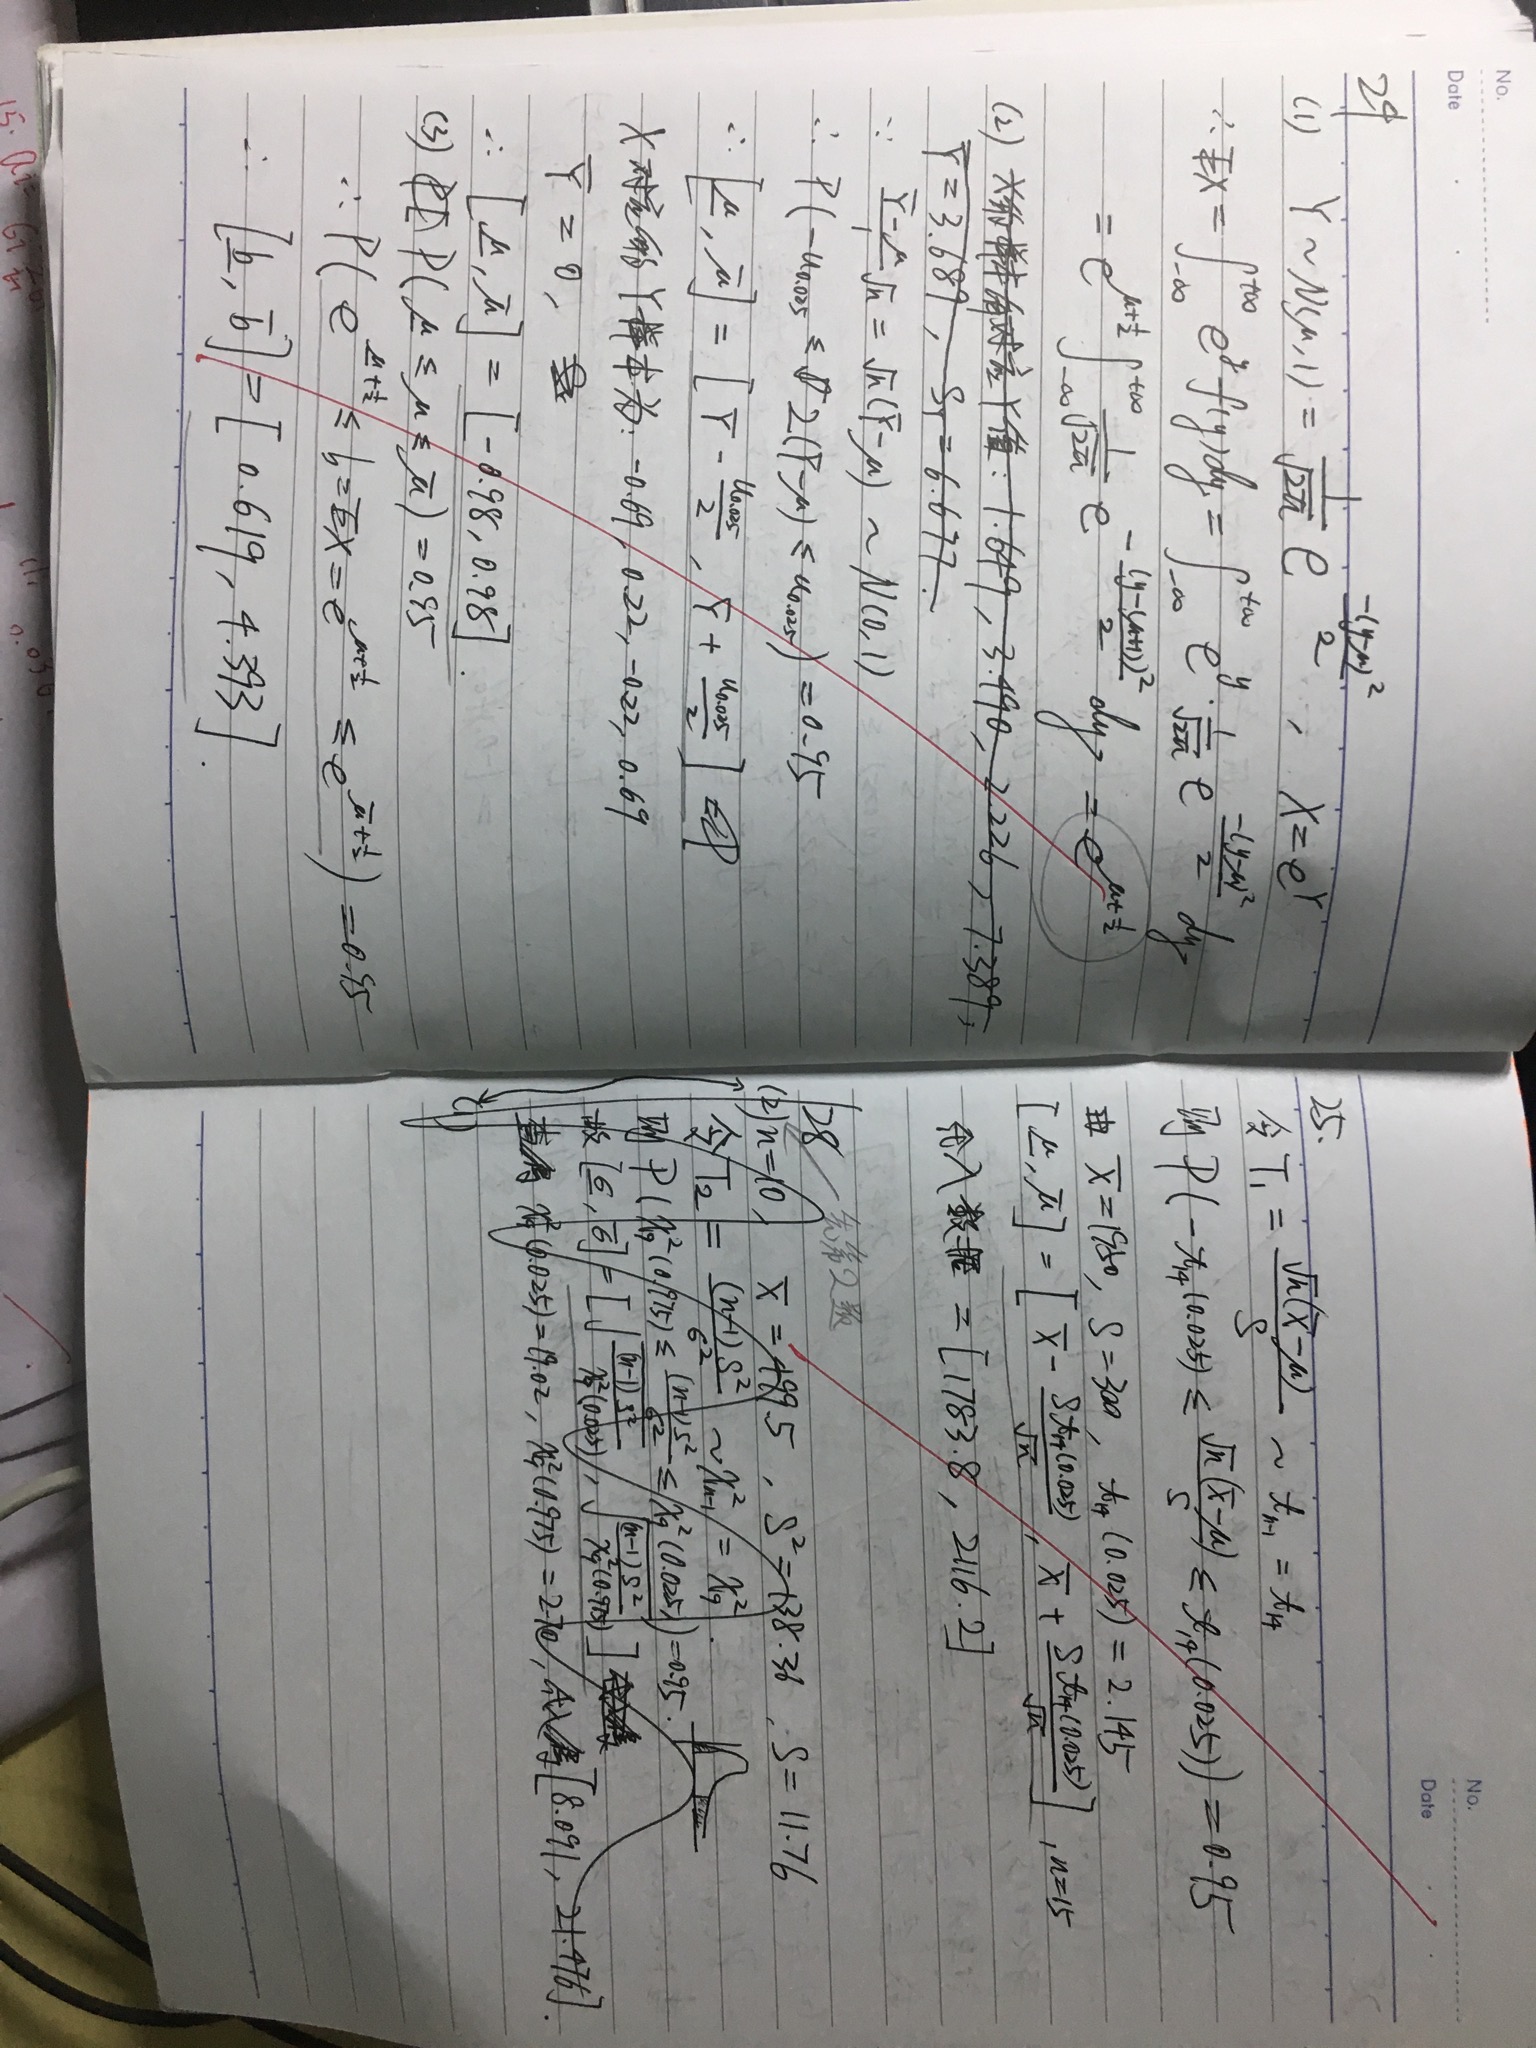 No.
Date
29
(1) Y ~ N(μ, 1) = 1/√2π e^(-(y-μ)²/2) , X = e^Y
∴ EX = ∫_{-∞}^{+∞} e^y f(y)dy = ∫_{-∞}^{+∞} e^y · 1/√2π e^(-(y-μ)²/2) dy
= e^(μ+½) ∫_{-∞}^{+∞} 1/√2π e^(-(y-(μ+1))²/2) dy = e^(μ+½)
(2) 对应Y值: 1.649, 3.490, 2.226, 7.389,
Ȳ = 3.689, S_Y = 6.677.
∵ (Ȳ-μ)/1 √n = √n(Ȳ-μ) ~ N(0,1)
∴ P(-u0.025 ≤ 2(Ȳ-μ) ≤ u0.025) = 0.95
∴ [μ̲, μ̄] = [Ȳ - u0.025/2, Ȳ + u0.025/2]
X对应的Y样本为: -0.69, 0.22, -0.22, 0.69
Ȳ = 0,
∴ [μ̲, μ̄] = [-0.98, 0.98].
(3) P(μ̲ ≤ μ ≤ μ̄) = 0.95
∴ P(e^(μ̲+½) ≤ b = EX = e^(μ+½) ≤ e^(μ̄+½)) = 0.95
∴ [b̲, b̄] = [0.619, 4.393].
No.
Date
25.
令 T₁ = √n(X̄-μ)/S ~ t_{n-1} = t₁₄
则 P(-t₁₄(0.025) ≤ √n(X̄-μ)/S ≤ t₁₄(0.025)) = 0.95
由 X̄ = 1950, S = 300, t₁₄(0.025) = 2.145
[μ̲, μ̄] = [X̄ - S t₁₄(0.025)/√n, X̄ + S t₁₄(0.025)/√n], n=15
代入数据 = [1783.8, 2116.2]
28 先第2教
(2) n=10, X̄ = 499.5, S² = 138.36, S = 11.76
令 T₂ = (n-1)S²/σ² ~ χ²_{n-1} = χ²₉.
则 P(χ₉²(0.975) ≤ (n-1)S²/σ² ≤ χ₉²(0.025)) = 0.95.
故 [σ̲, σ̄] = [√((n-1)S²/χ₉²(0.025)), √((n-1)S²/χ₉²(0.975))]
χ₉²(0.025) = 19.02, χ₉²(0.975) = 2.70, [8.091, 21.476].